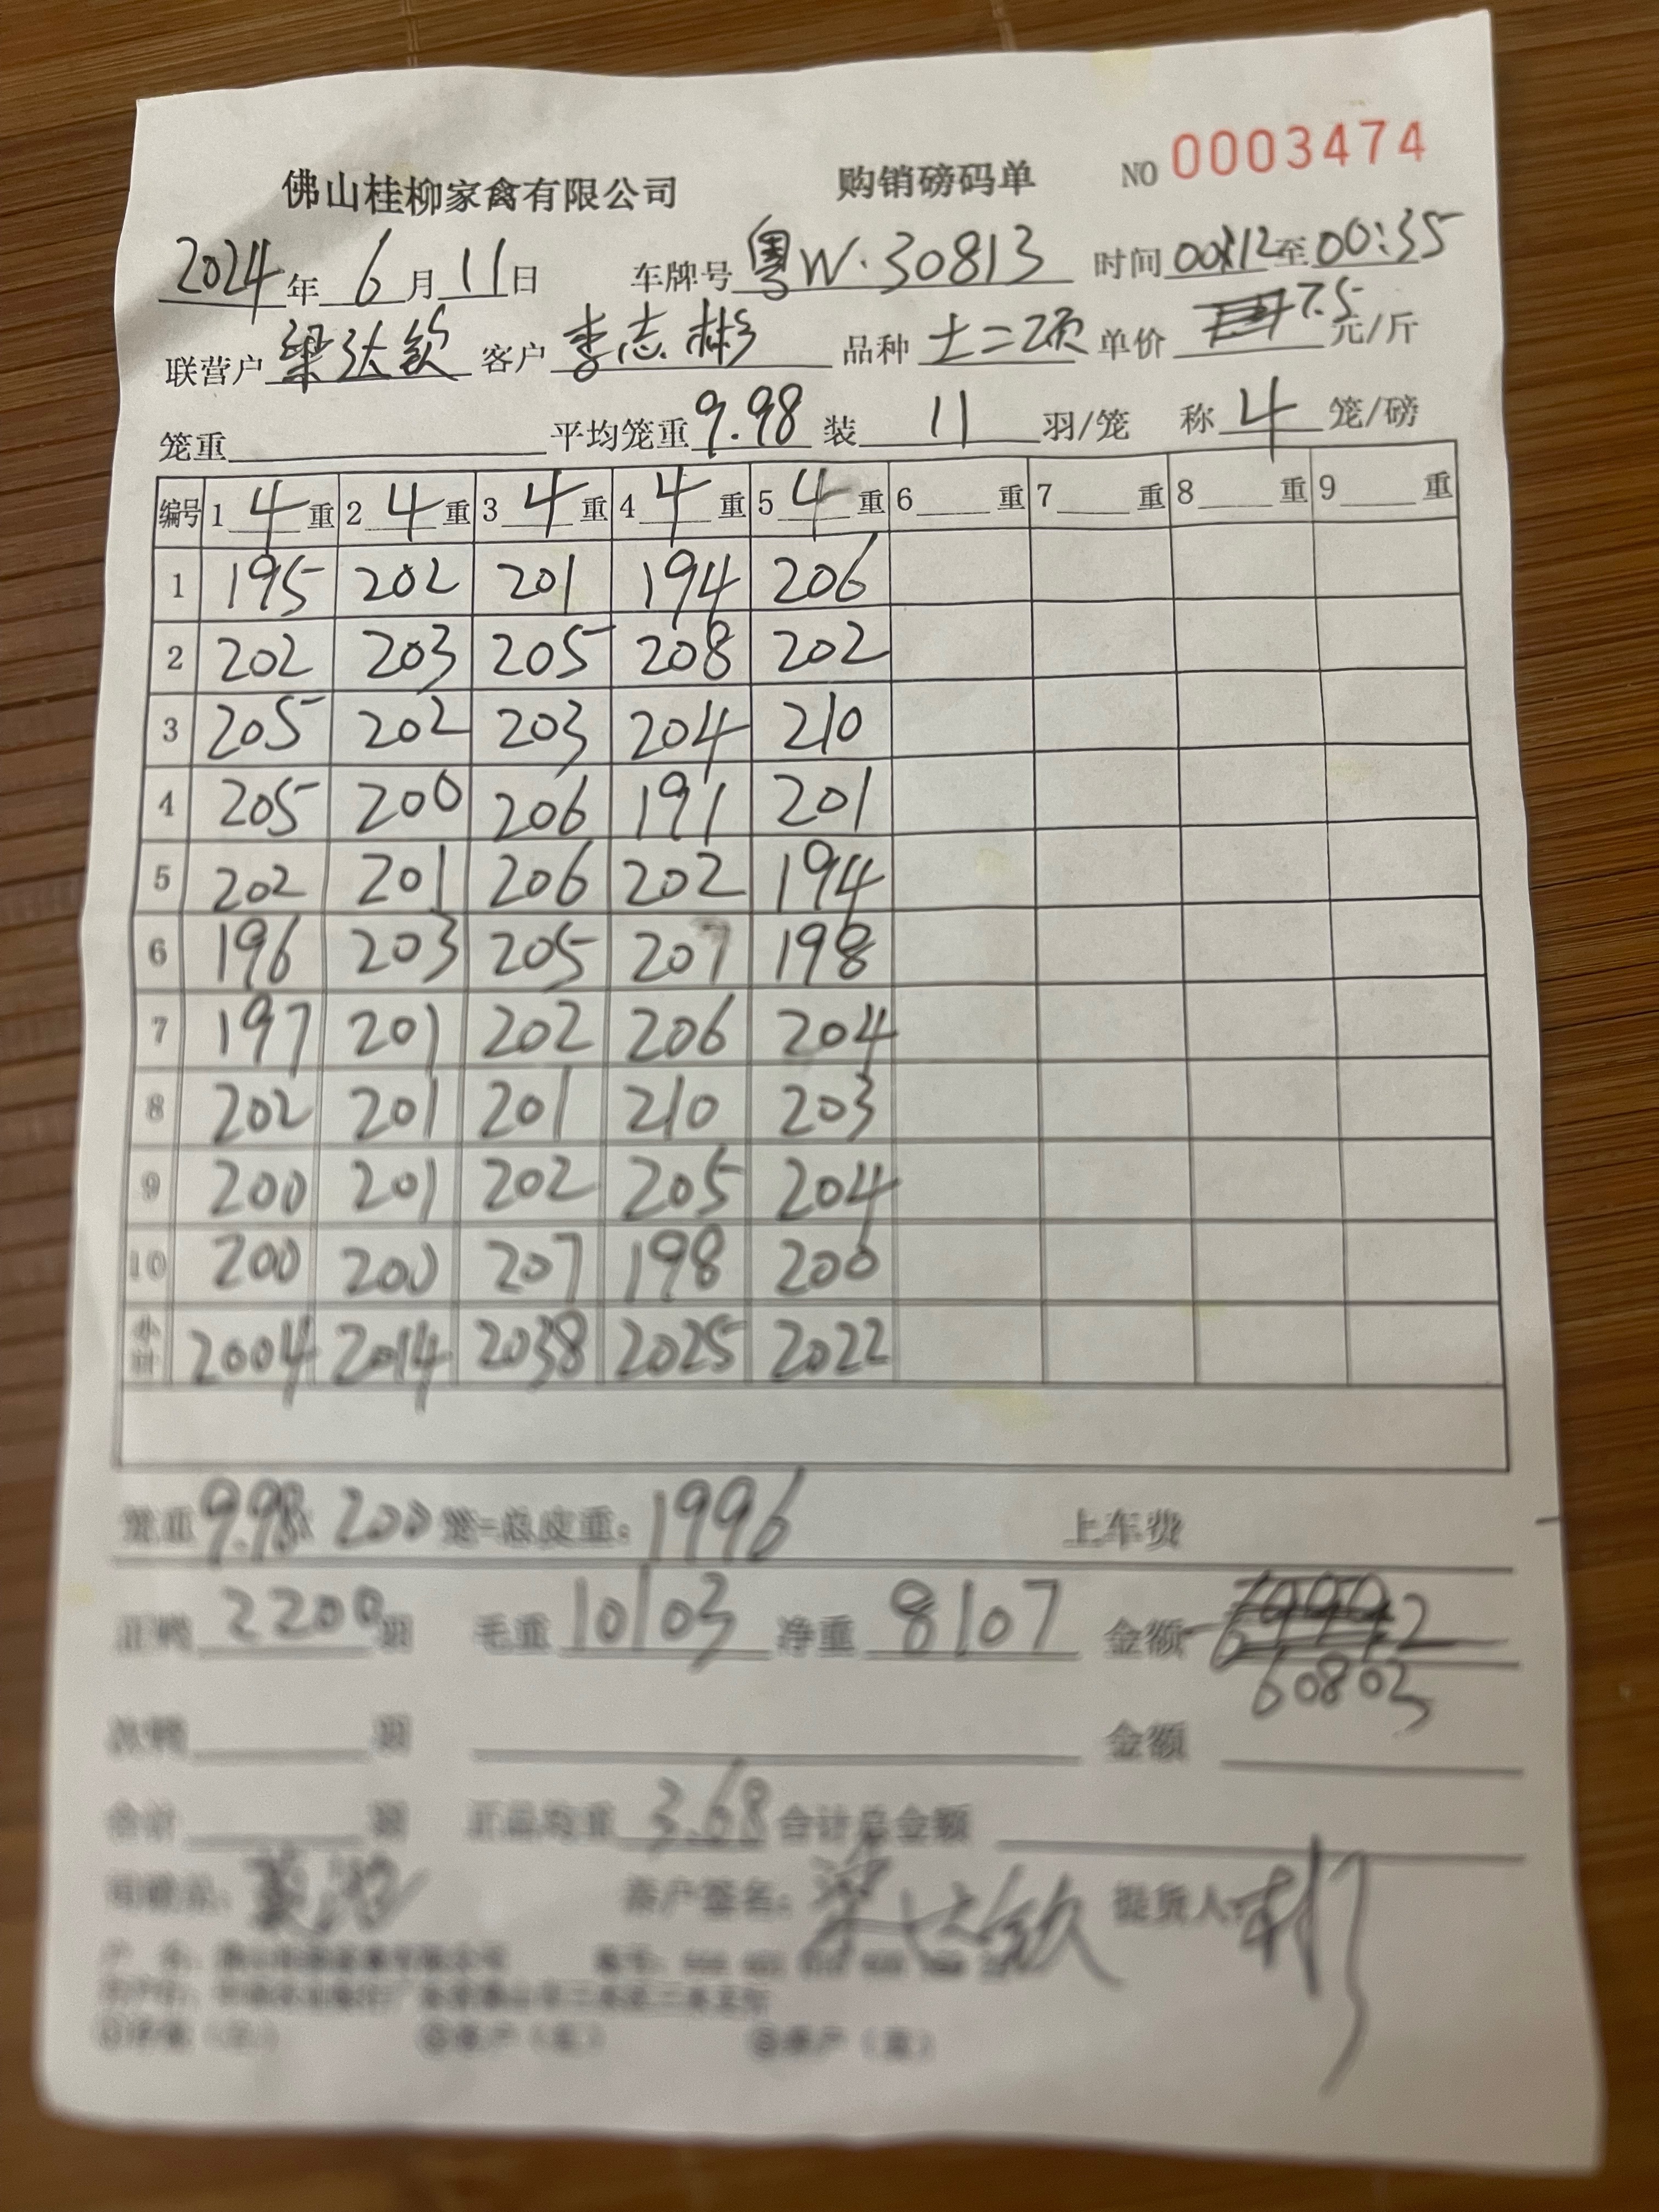 佛山桂柳家禽有限公司 购销磅码单 NO 0003474
2024年6月11日 车牌号粤W·30813 时间00:12至00:35
联营户梁达钦 客户李志彬 品种土二项 单价7.5元/斤
笼重 平均笼重9.98 装11羽/笼 称4笼/磅
编号 1 4重 2 4重 3 4重 4 4重 5 4重 6 重 7 重 8 重 9 重
1 195 202 201 194 206
2 202 203 205 208 202
3 205 202 203 204 210
4 205 200 206 191 201
5 202 201 206 202 194
6 196 203 205 207 198
7 197 201 202 206 204
8 202 201 201 210 203
9 200 201 202 205 204
10 200 200 207 198 200
小计 2004 2014 2038 2025 2022
笼重9.98X 200笼=总皮重:1996 上车费
正鸭2200羽 毛重10103 净重8107 金额
60803
次鸭 羽 金额
合计 羽 正品均重3.68 合计总金额
客户签名:梁达钦 提货人:彬